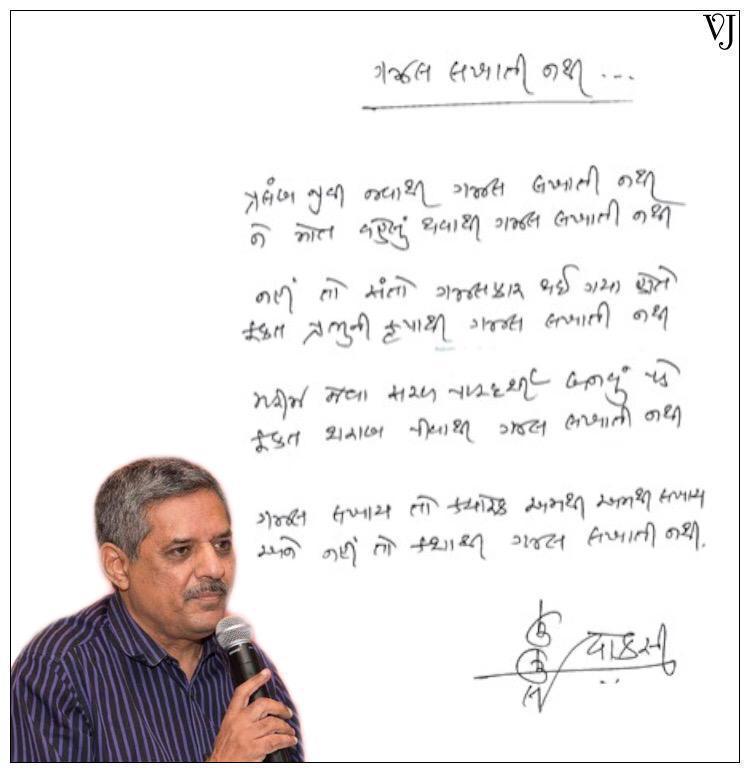 VJ
ગઝલ લખાતી નથી ...
પ્રલંબ જીવી જવાથી ગઝલ લખાતી નથી
ને મોત વહેલું થવાથી ગઝલ લખાતી નથી
નહીં તો સંતો ગઝલકાર થઈ ગયા હોતે
ફક્ત પ્રભુની કૃપાથી ગઝલ લખાતી નથી
મરીઝ જેવા સરળ પારદર્શી બનવું પડે
ફક્ત શરાબ પીવાથી ગઝલ લખાતી નથી
ગઝલ લખાય તો ક્યારેક અમથી અમથી લખાય
અને નહીં તો કશાથી ગઝલ લખાતી નથી.